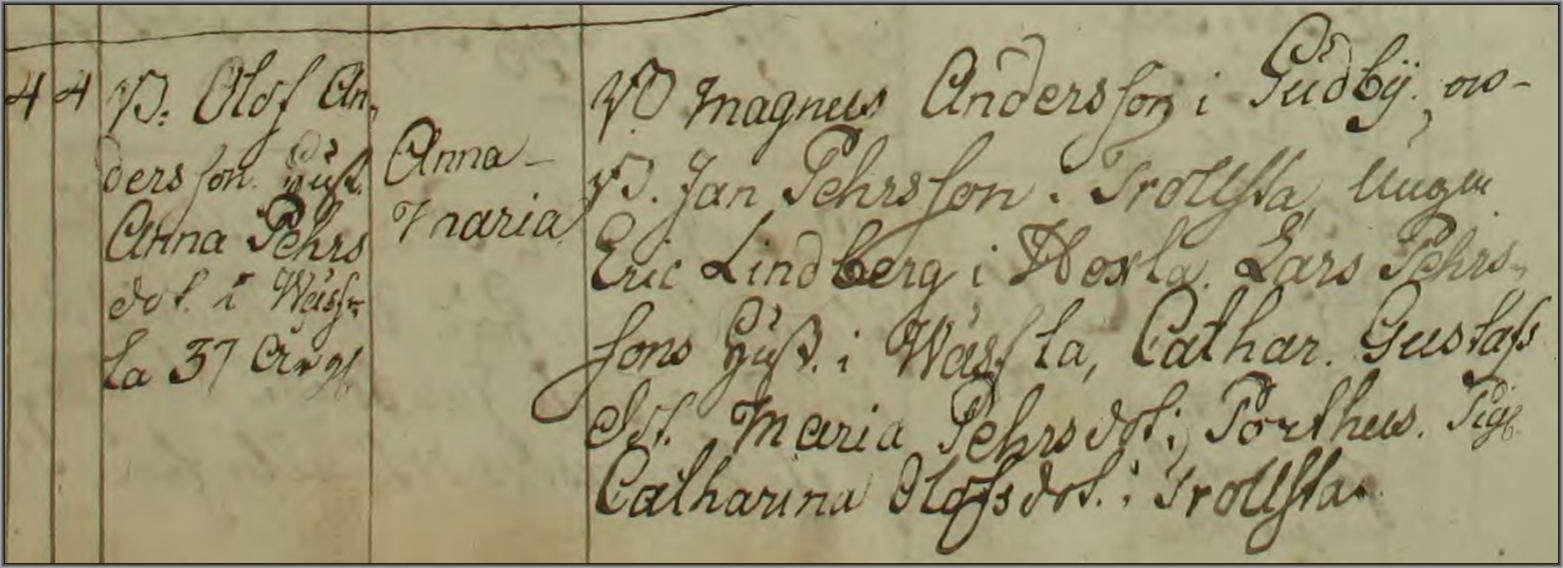 4 4 B. Olof An-
dersson. Hust.
Anna Pehrs
dot. i Wäsf-
la 37 årgl
Anna-
Maria
B Magnus Andersson i Gudby, os-
B. Jan Pehrsson i Trollsta, Ungm
Eric Lindberg i Noxla. Lars Pehrs-
sons Hust. i Wäsfla, Cathar. Gustafs
dot. Maria Pehrsdot i Porthus. Pig.
Catharina Olofsdot. i Trollsta